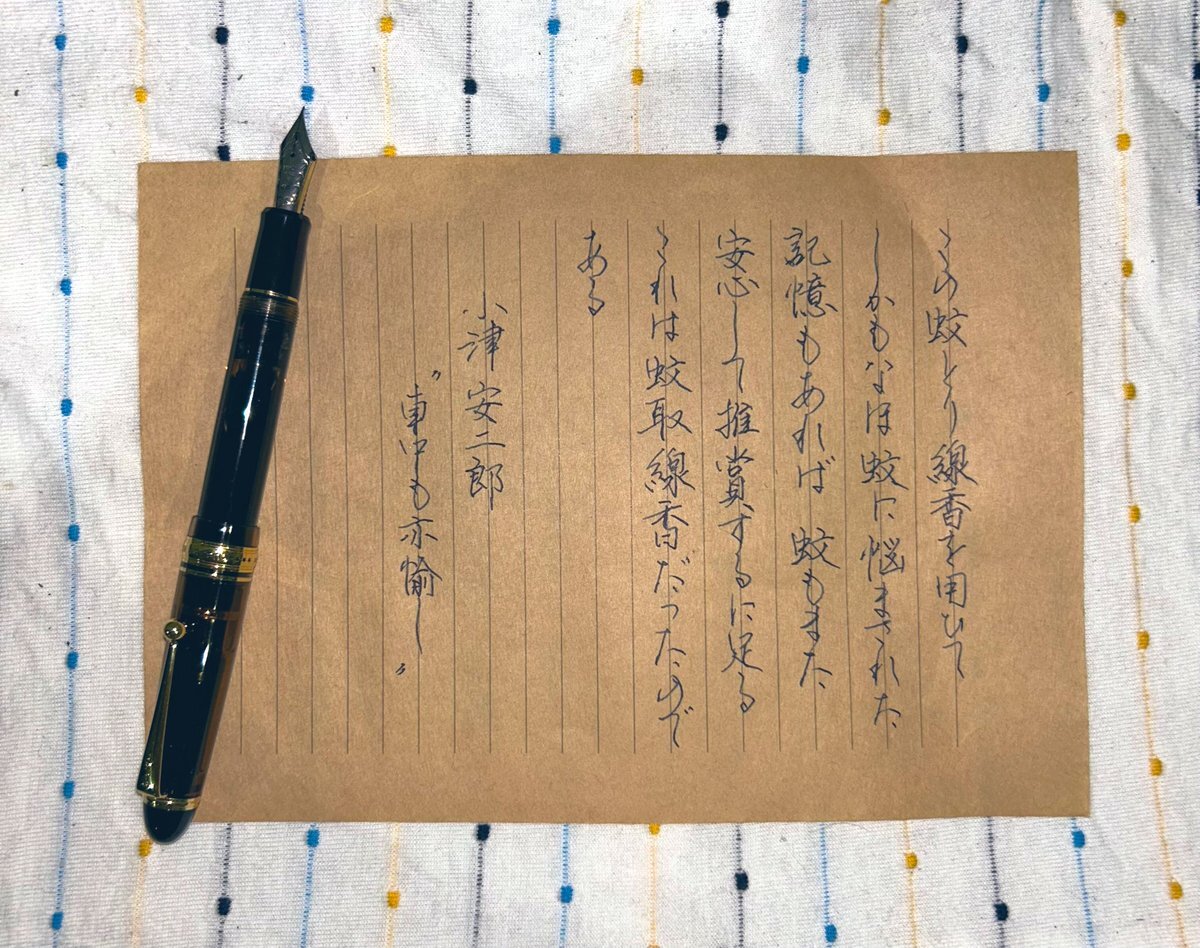 この蚊とり線香を用ひて
しかもなほ蚊に悩まされた
記憶もあれば 蚊もまた
安心して推賞するに足る
これは蚊取線香だったので
ある
小津安二郎
〝車中も亦愉し〟